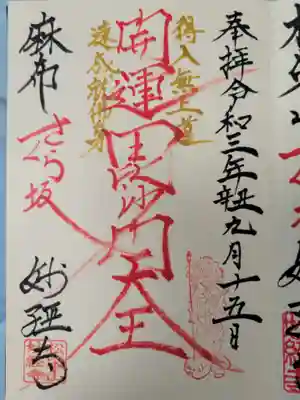 奉拝令和三年辛丑九月十五日
得入無上道
速成就仏身
開運毘沙門天王
麻布
さくら坂
妙経寺